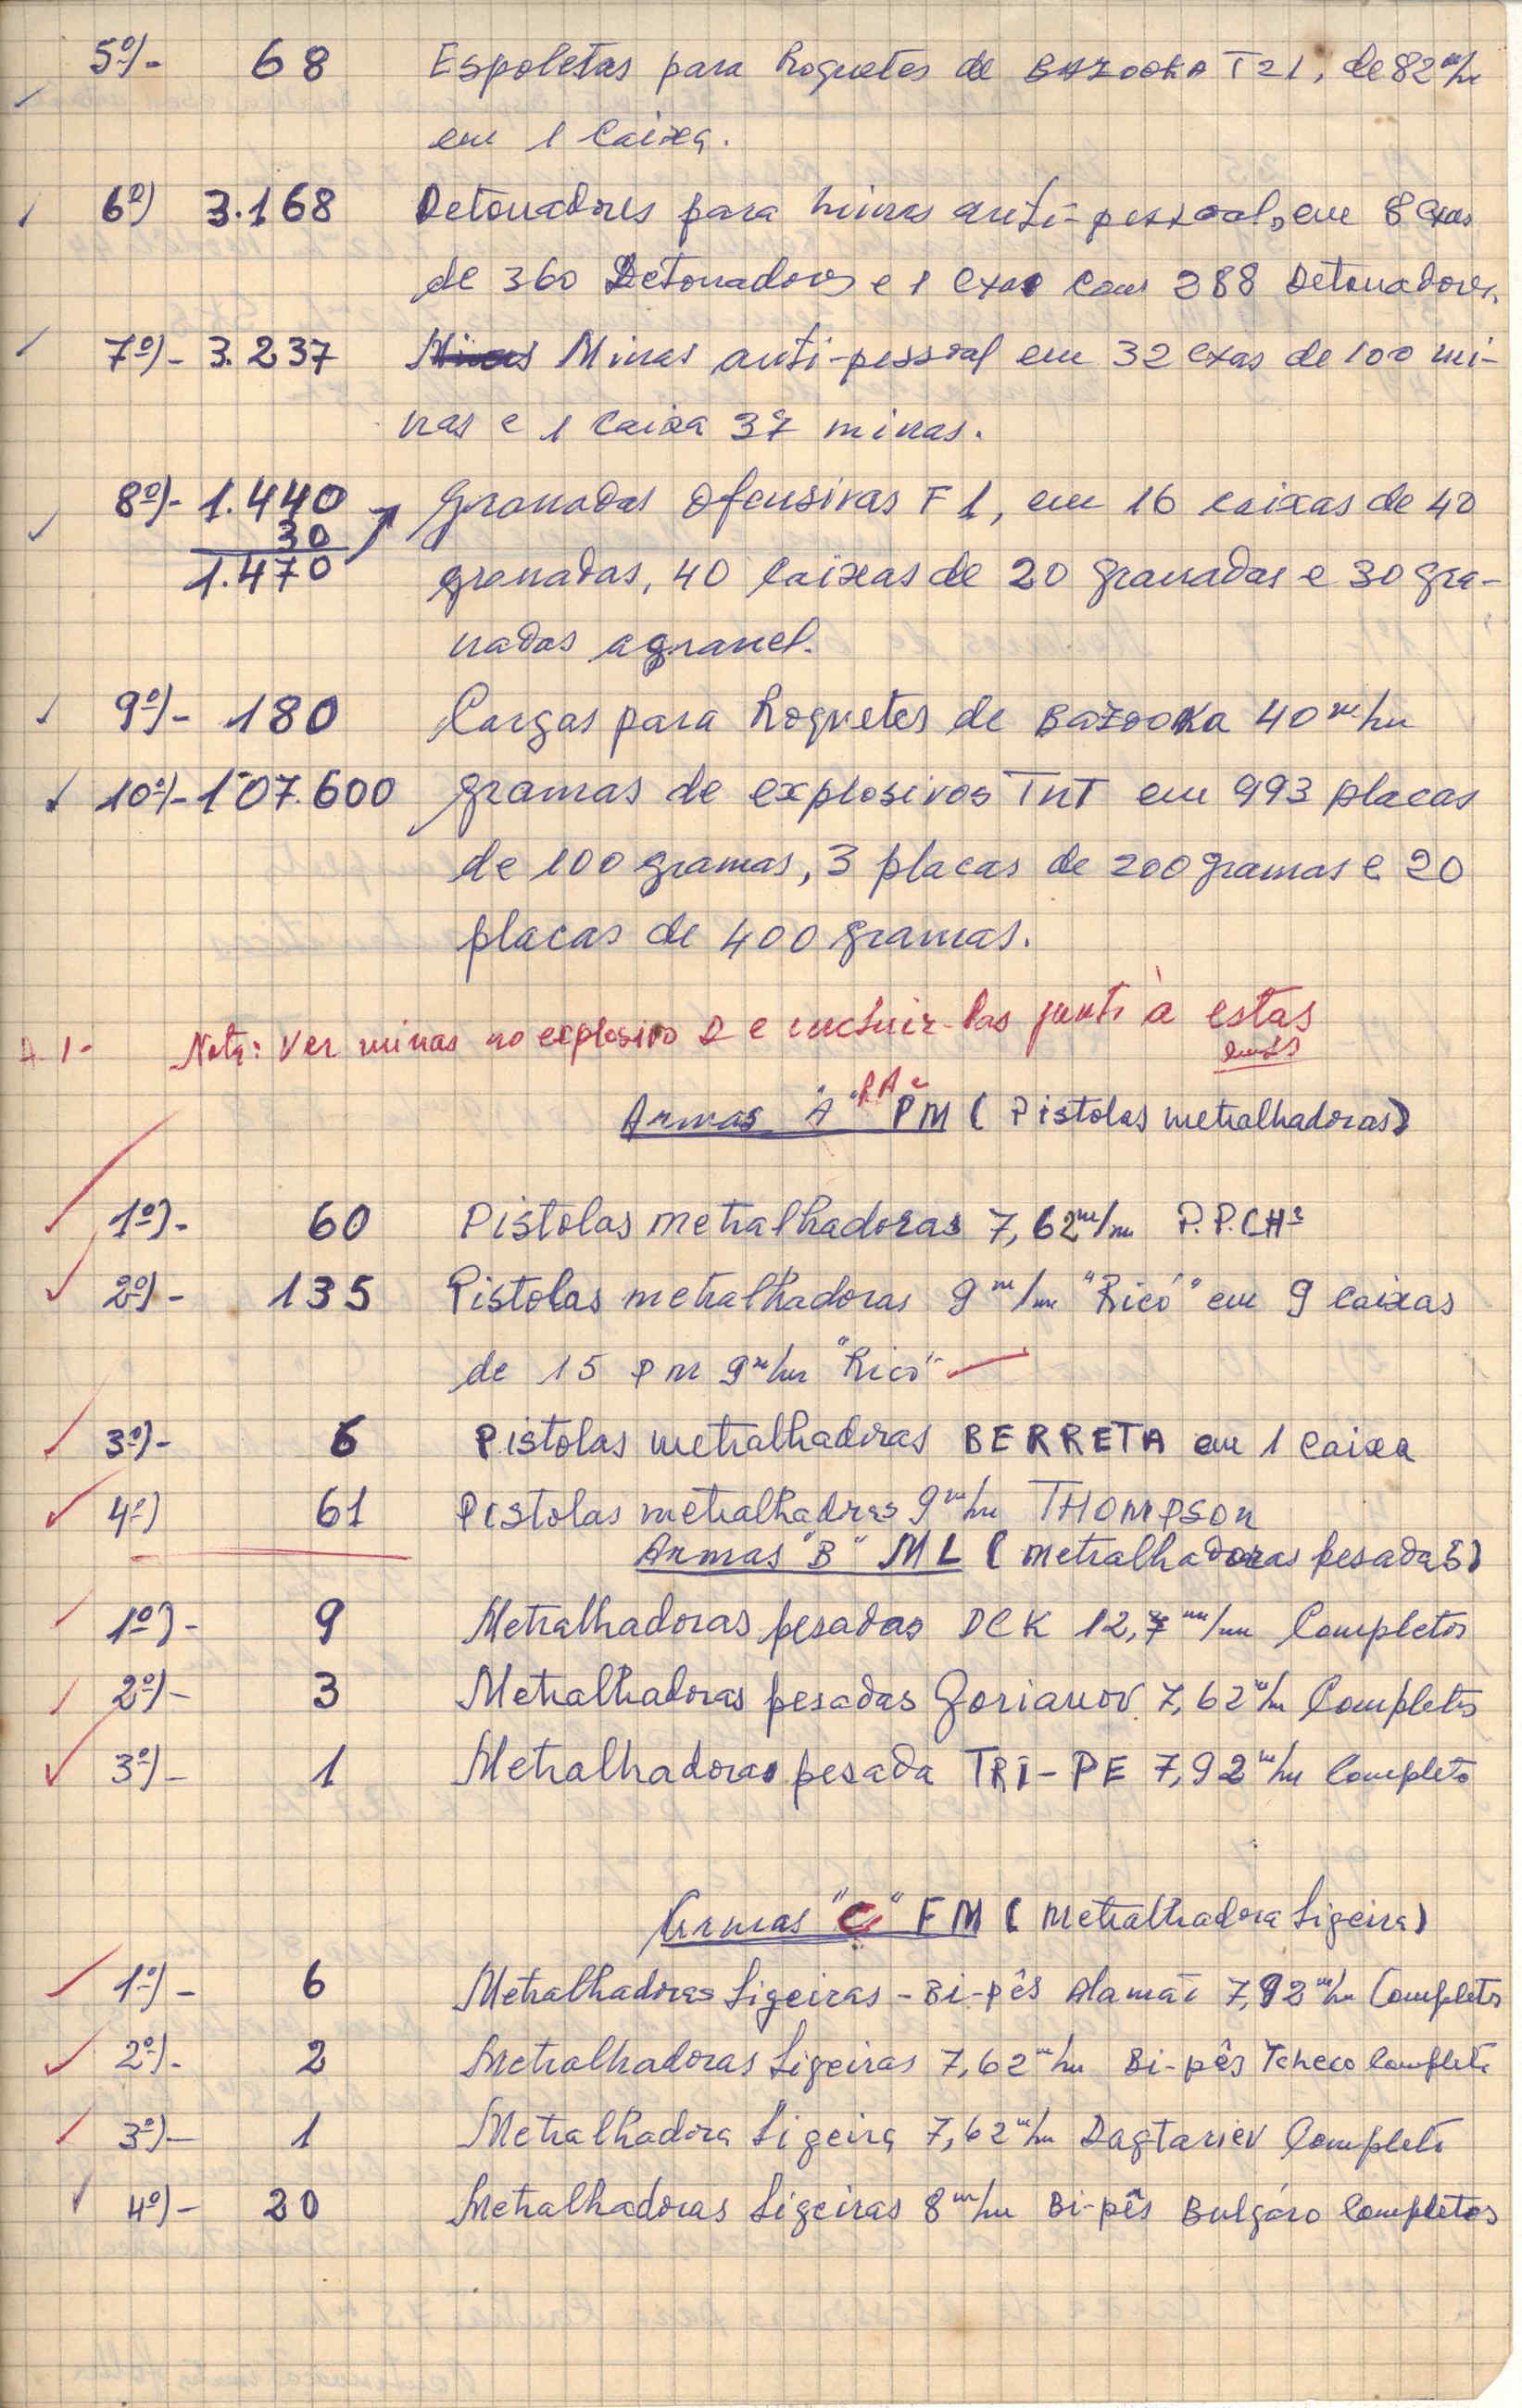 5º)- 68 Espoletas para Roquetes de BAZOOKA T21, de 82 m/m
em 1 Caixa.
6º) 3.168 Detonadores para minas anti-pessoal, em 8 Cxas
de 360 Detonadores e 1 Cxa com 288 Detonadores.
7º)- 3.237 Minas Minas anti-pessoal em 32 Cxas de 100 mi-
nas e 1 Caixa 37 minas.
8º)- 1.440 Granadas Ofensivas F1, em 16 caixas de 40
30
1.470 granadas, 40 Caixas de 20 granadas e 30 gra-
nadas agranel.
9º)- 180 Cargas para Roquetes de BAZOOKA 40 m/m
10º)- 107.600 gramas de explosivos TNT em 993 placas
de 100 gramas, 3 placas de 200 gramas e 20
placas de 400 gramas.
Nota: Ver minas no explosivo D e incluir-las junto à estas
Armas "A" RA e PM (Pistolas metralhadoras)
1º)- 60 Pistolas metralhadoras 7,62 m/m P.P.CHs
2º)- 135 Pistolas metralhadoras 9 m/m "Ricó" em 9 caixas
de 15 PM 9 m/m "Ricó"
3º)- 6 Pistolas metralhadoras BERRETA em 1 Caixa
4º) 61 Pistolas metralhadras 9 m/m THOMPSON
Armas "B" ML (metralhadoras pesadas)
1º)- 9 Metralhadoras pesadas DCK 12,7 m/m Completos
2º)- 3 Metralhadoras pesadas Gorianov 7,62 m/m Completos
3º)- 1 Metralhadora pesada TRI-PE 7,92 m/m Completo
Armas "C" FM (metralhadora Ligeira)
1º)- 6 Metralhadoras Ligeiras - Bi-pês Alamãi 7,92 m/m Completos
2º)- 2 Metralhadoras Ligeiras 7,62 m/m Bi-pês Tcheco Completo
3º)- 1 Metralhadora Ligeira 7,62 m/m Dagtariev Completo
4º)- 20 Metralhadoras Ligeiras 8 m/m Bi-pês Bulgáro Completos